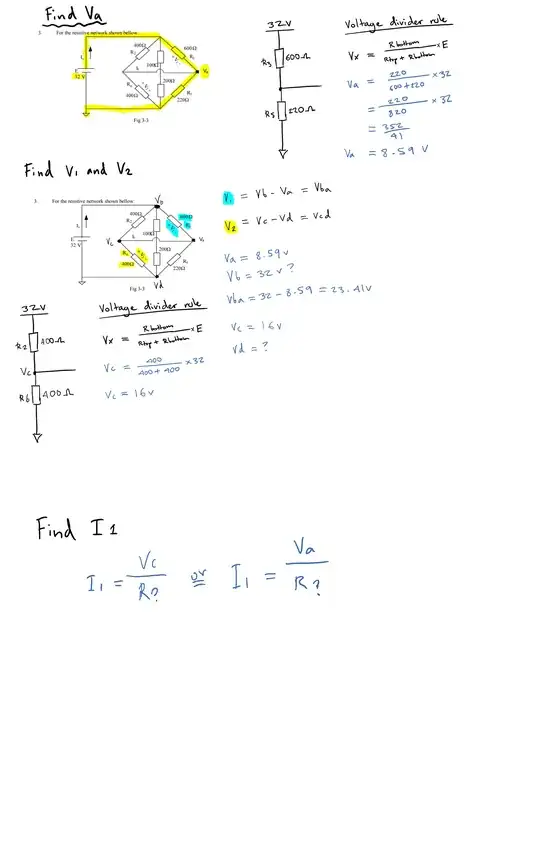 Find Va
3. For the resistive network shown bellow:
I₁
E
32 V
400Ω
R₂
100Ω
I₁
R₆
400Ω
600Ω
R₃
200Ω
R₅
220Ω
Va
Fig 3-3
32V
R3
600Ω
R5
220Ω
Voltage divider rule
Vx = Rbottom / Rtop + Rbottom × E
Va = 220 / 600+220 × 32
= 220 / 820 × 32
= 352 / 41
Va = 8.59 V
Find V1 and V2
3. For the resistive network shown bellow:
Vb
32 V
400Ω
R₂
100Ω
Vc
400Ω
200Ω
220Ω
Vd
Fig 3-3
V1 = Vb - Va = Vba
V2 = Vc - Vd = Vcd
Va = 8.59v
Vb = 32 v ?
Vba = 32 - 8.59 = 23.41v
Vc = 16v
Vd = ?
32V
R2
400Ω
Vc
R6
400Ω
Voltage divider rule
Vx = Rbottom / Rtop + Rbottom × E
Vc = 400 / 400 + 400 × 32
Vc = 16v
Find I1
I₁ = Vc / R? or I₁ = Va / R?